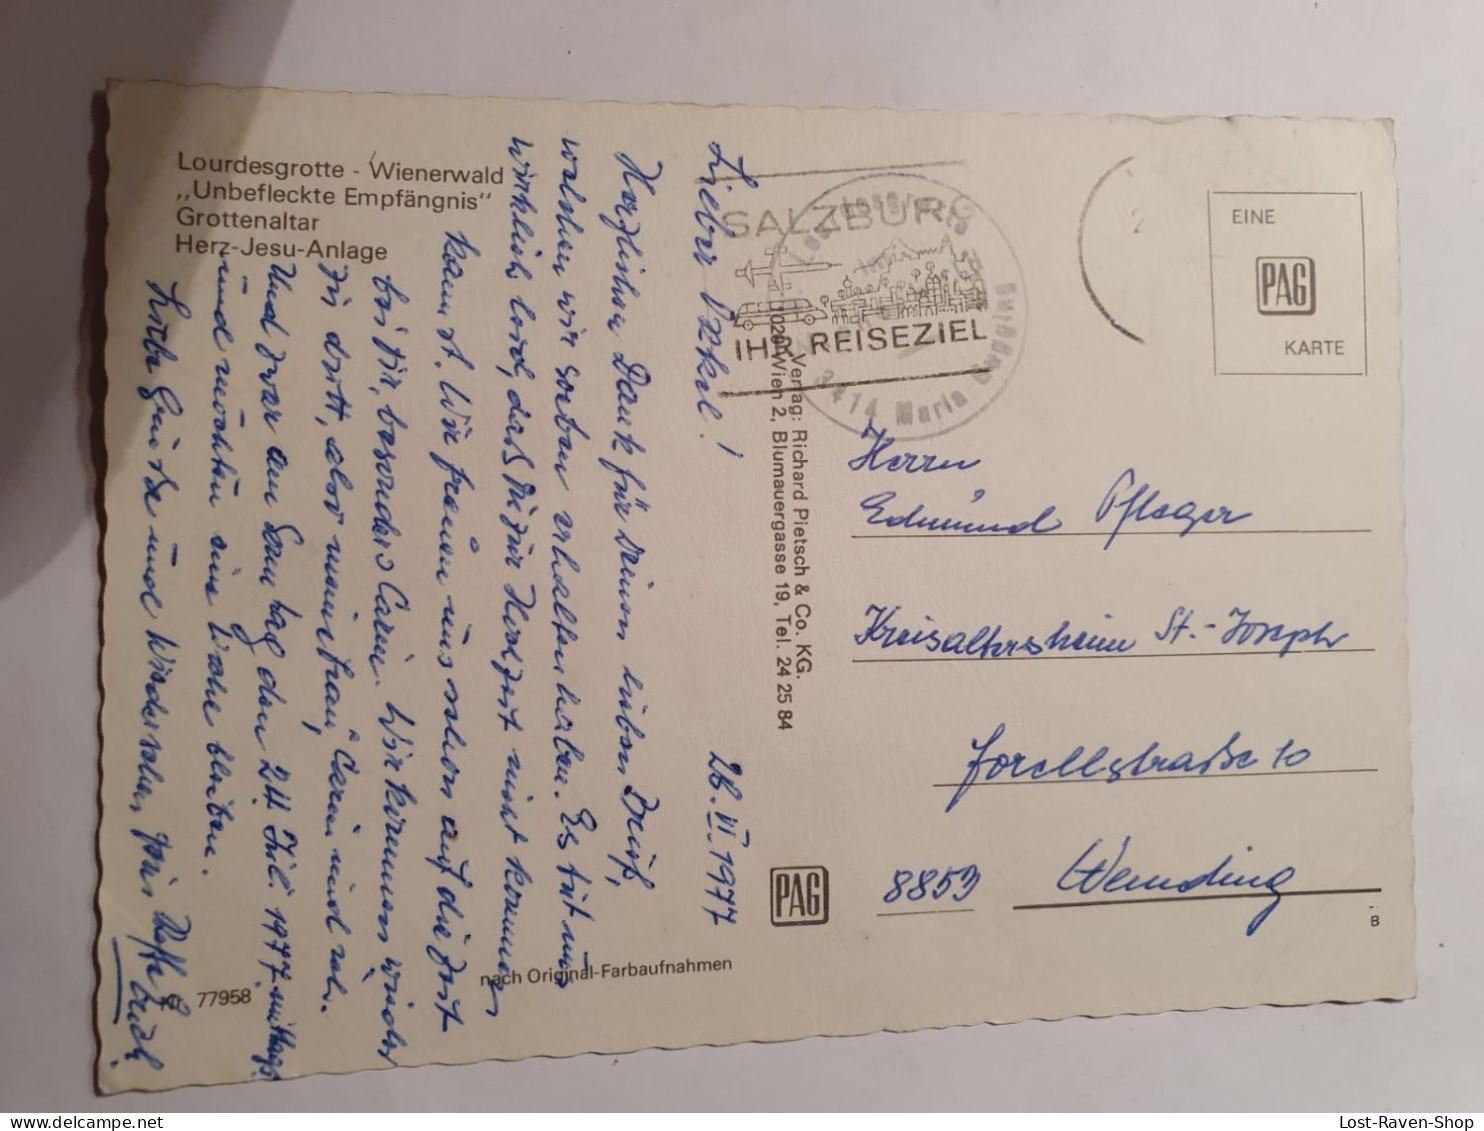 Lourdesgrotte - Wienerwald
„Unbefleckte Empfängnis"
Grottenaltar
Herz-Jesu-Anlage
26. VI. 1977
Lieber Onkel!
Herzlichen Dank für Deinen lieben Brief,
welchen wir soeben erhalten haben. Es tut uns
wirklich leid, daß Du zur Hochzeit nicht kommen
kannst. Wir freuen uns schon auf die Zeit
bei Dir, besonders Carin. Wir kommen wieder
zu dritt, also meine Frau, Carin und ich.
Und zwar am Samstag den 24. Juli 1977 mittags
und möchten eine Woche bleiben.
Liebe Grüße und Wiedersehen
77958
nach Original-Farbaufnahmen
PAG
Verlag: Richard Pietsch & Co. KG.
1020 Wien 2, Blumauergasse 19, Tel. 24 25 84
SALZBURG
IHR REISEZIEL
3414 Maria Gugging
EINE
PAG
KARTE
Herrn
Edmund Pfleger
Kreisaltersheim St.-Joseph
Forellstraße 10
8853 Wemding
B
Lost-Raven-Shop